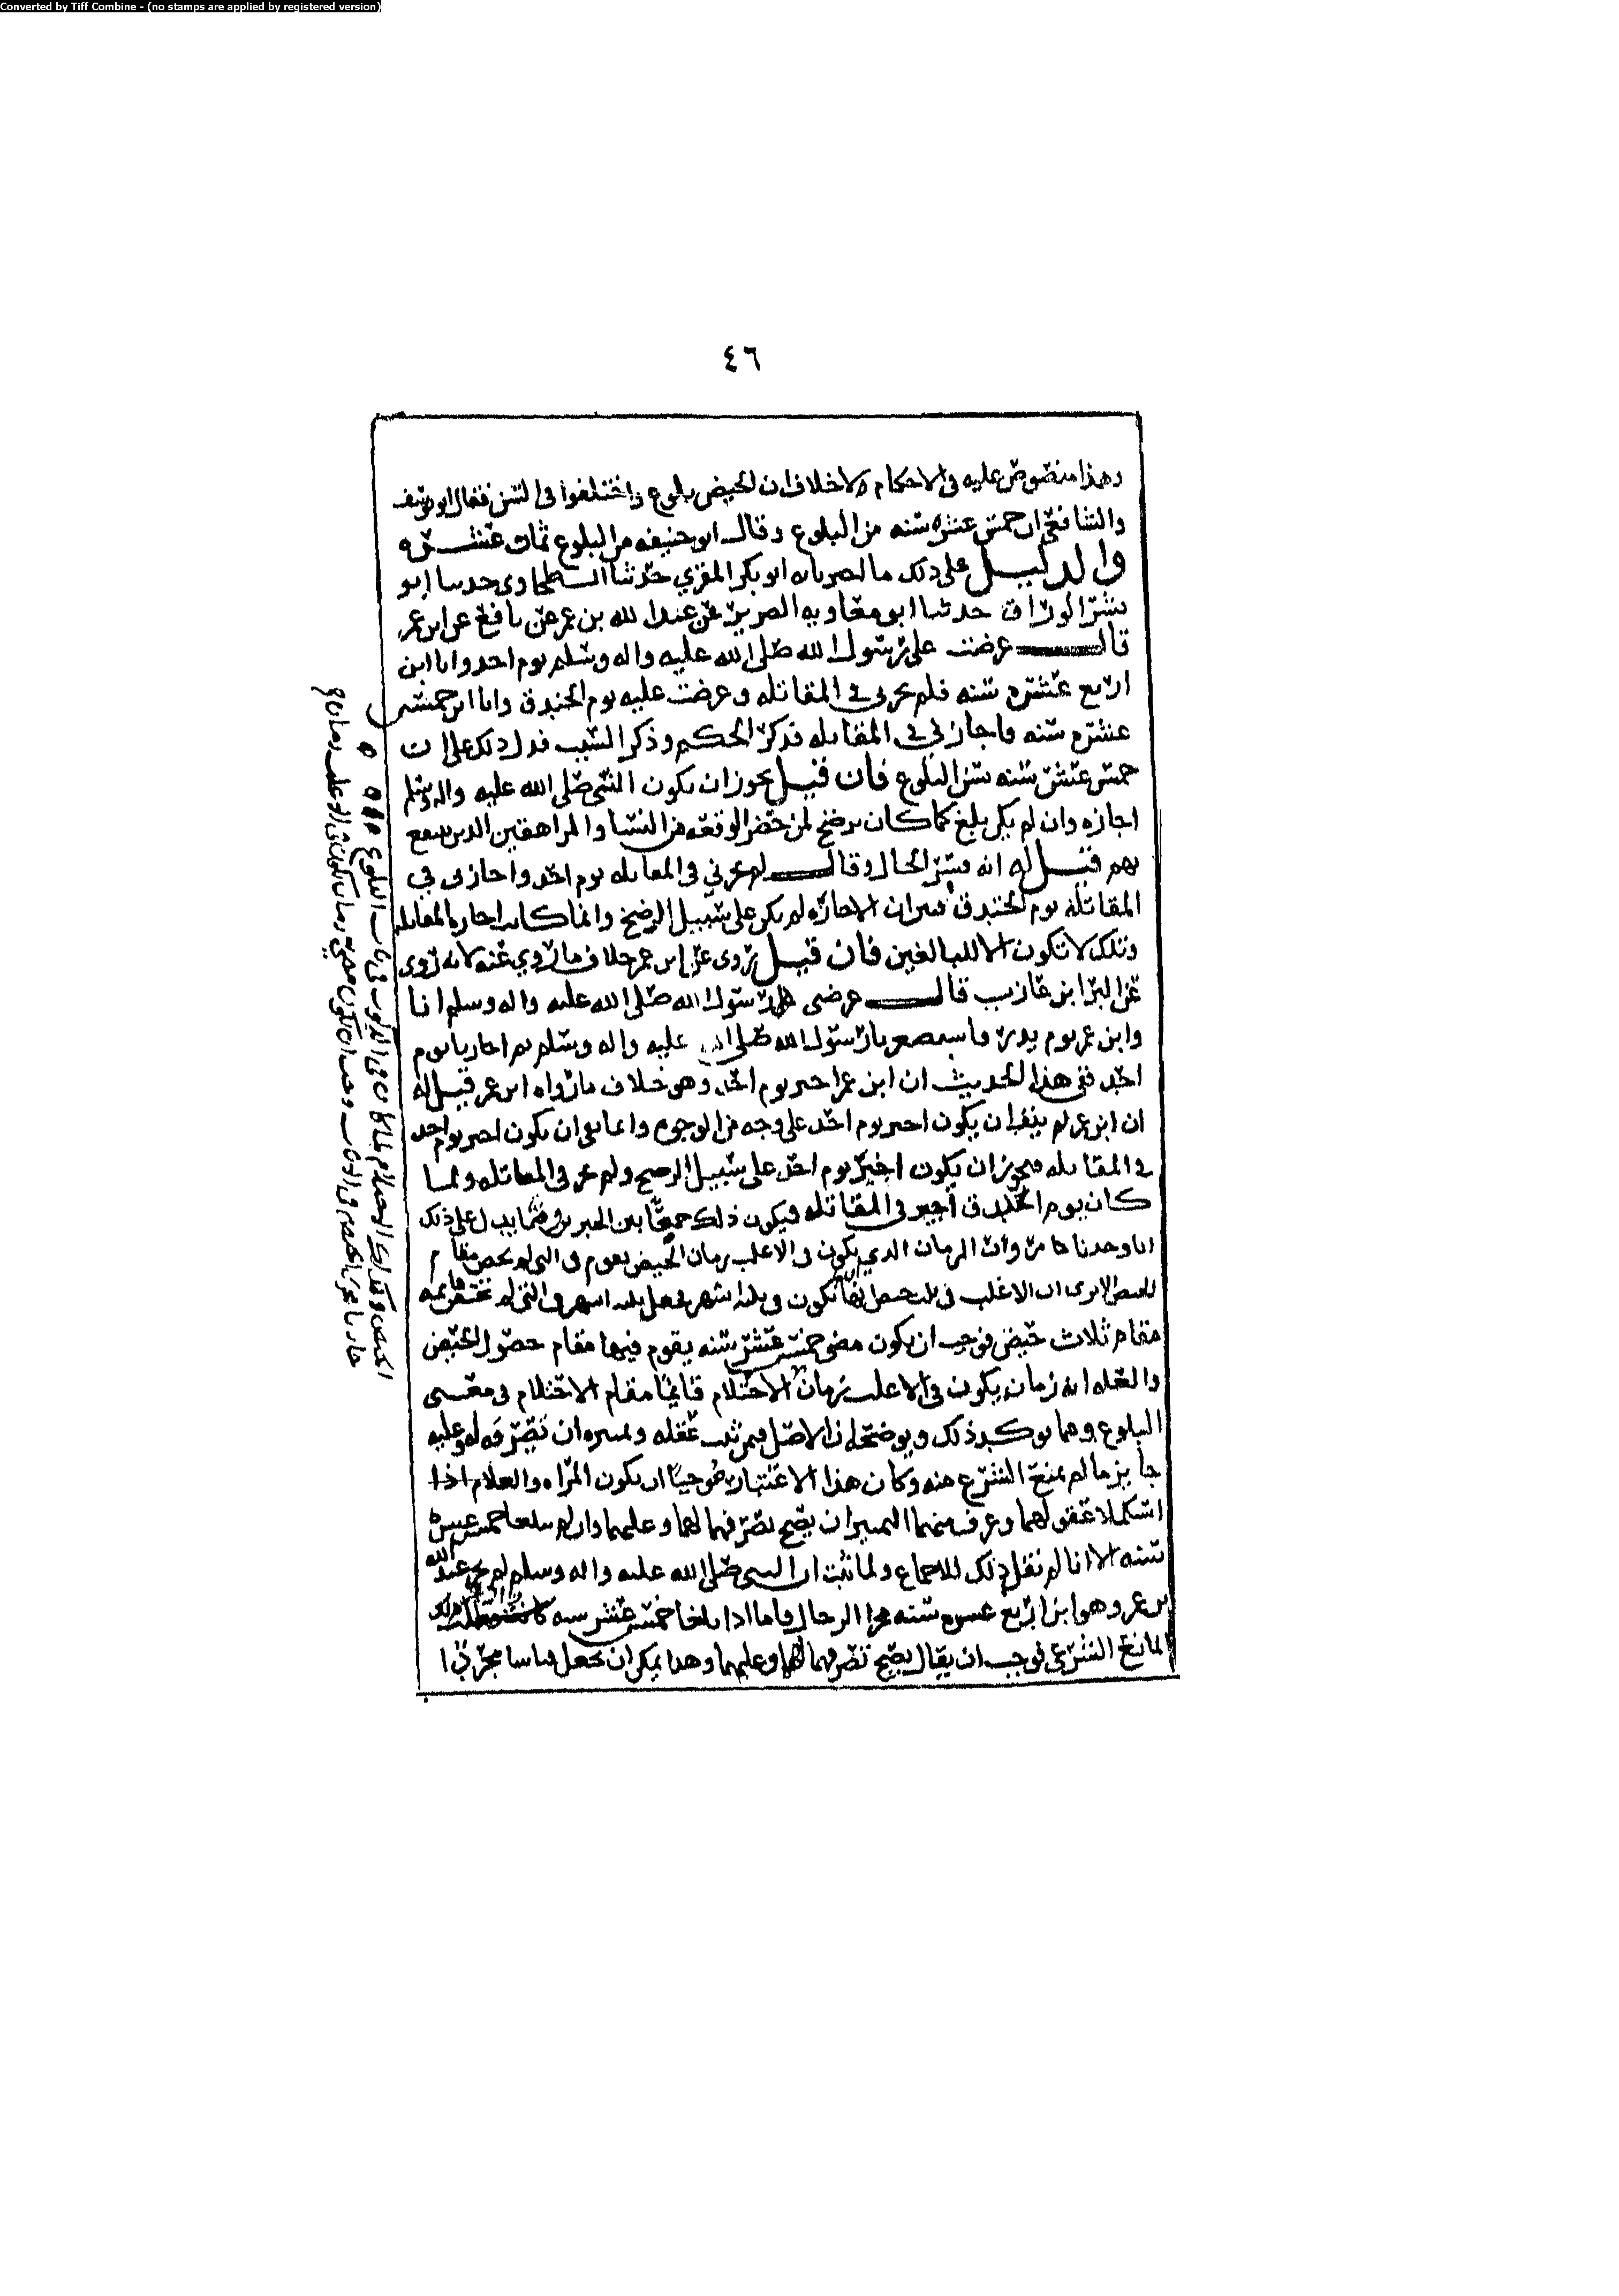 Converted by Tiff Combine - (no stamps are applied by registered version)
٤٦
وهذا منصوص عليه في الاحكام ولاخلاف ان الحيض بلوغ واختلفوا في السن فقال ابو يوسف
والشافعي ان خمس عشره سنه من البلوغ وقال ابو حنيفه من البلوغ ثمان عشره
والدليل على ذلك ما اخبرنا به ابو بكر المقري حدثنا الطحاوي حدثنا ابو
بشر الوراق حدثنا ابو معاويه الضرير عن عبدالله بن عمر عن نافع عن ابن عمر
قال عرضت على رسول الله صلى الله عليه واله وسلم يوم احد وانا ابن
اربع عشره سنه فلم يجزني في المقاتله وعرضت عليه يوم الخندق وانا ابن خمس
عشره سنه فاجازني في المقاتله فذكر الحكم وذكر السبب فدل ذلك على ان
خمس عشر سنه سن البلوغ فان قيل يجوز ان يكون النبي صلى الله عليه واله وسلم
اجازه وان لم يكن بلغ كما كان يرضخ لمن حضر الوقعه من النسا والمراهقين الذين ينتفع
بهم قيل له انه فسر الحال وقال لم يجزني في المقاتله يوم احد واجازني في
المقاتله يوم الخندق فبين ان الاجازه لم يكن على سبيل الرضخ وانما كانت اجازه المقاتله
وتلك لا تكون الا للبالغين فان قيل روى عن ابن عمر خلاف ما روي عنه لانه روى
عن البرا ابن عازب قال عرضني رسول الله صلى الله عليه واله وسلم انا
وابن عمر يوم بدر فاستصغرنا رسول الله صلى الله عليه واله وسلم ثم اجازنا يوم
احد ففي هذا الحديث ان ابن عمر اجيز يوم احد وهو خلاف ما رواه ابن عمر قيل له
ان ابن عمر لم ينف ان يكون اجيز يوم احد على وجه من الوجوه وانما نفى ان يكون اجيز يوم احد
في المقاتله فيجوز ان يكون اجيز يوم احد على سبيل الرضخ ولم يجز في المقاتله ولما
كان يوم الخندق اجيز في المقاتله فيكون ذلك جمعا بين الخبرين ومما يدل على ذلك
انا وجدنا الزمان الذي يكون في الاغلب زمان الحيض يقوم في التي لم تحض مقام
الحيض الا ترى ان الاغلب في ثلث حيض انها تكون في ثلثه اشهر فجعل ثلثه اشهر في التي لم تحض قائمه
مقام ثلاث حيض فوجب ان يكون مضي خمس عشر سنه يقوم فيها مقام حصول الحيض
والعله انه زمان يكون في الاغلب زمان الاحتلام قائما مقام الاحتلام في معنى
البلوغ ومما يوكد ذلك ويوضحه ان الاصل فيمن ثبت عقله وتميزه ان تصرفه له وعليه
جايز ما لم يمنع الشرع منه وكان هذا الاعتبار موجبا ان يكون المراه والغلام اذا
استكملا عقولهما وعرف منهما التمييز ان يصح تصرفهما لهما وعليهما وان لم يبلغا خمس عشره
سنه الا انا لم نقل ذلك للاجماع ولما ثبت ان النبي صلى الله عليه واله وسلم لم يجز عبد الله
بن عمر وهو ابن اربع عشره سنه مجرا الرجال فاما اذا بلغا خمس عشر سنه
المانع الشرعي فوجب ان يقال يصح تصرفهما لهما وعليهما وهذا يمكن ان نجعل قياسا مجرى ا